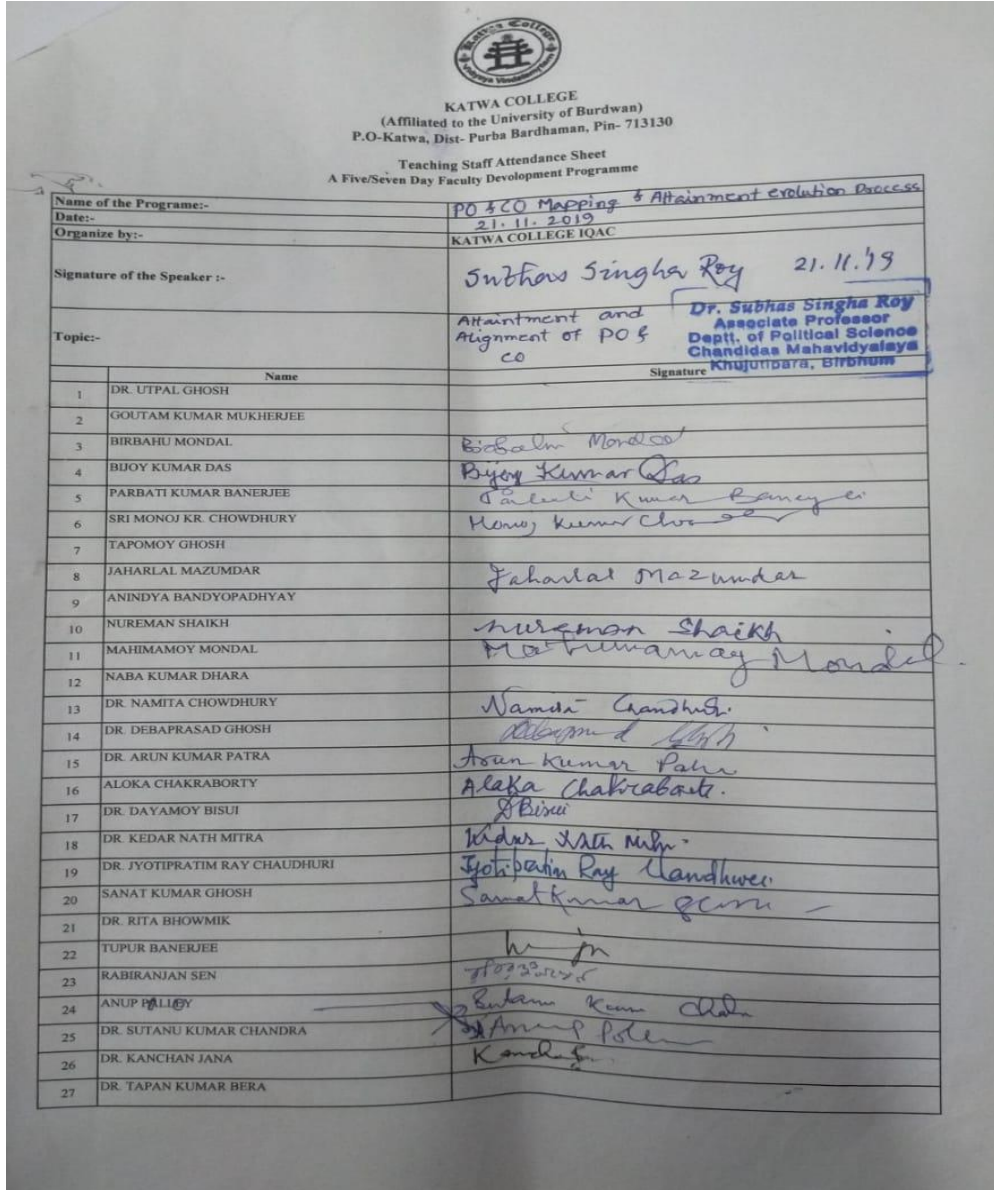 Katwa College
KATWA COLLEGE
(Affiliated to the University of Burdwan)
P.O-Katwa, Dist- Purba Bardhaman, Pin- 713130
Teaching Staff Attendance Sheet
A Five/Seven Day Faculty Devolopment Programme
Name of the Programe:- PO & CO Mapping & Attainment evolution Process
Date:- 21.11.2019
Organize by:- KATWA COLLEGE IQAC
Signature of the Speaker :- Subhas Singha Roy 21.11.'19
Topic:- Attaintment and Alignment of PO & CO
Dr. Subhas Singha Roy
Associate Professor
Deptt. of Political Science
Chandidas Mahavidyalaya
Khujutipara, Birbhum
Name Signature
1 DR. UTPAL GHOSH
2 GOUTAM KUMAR MUKHERJEE
3 BIRBAHU MONDAL Birbahu Mondal
4 BIJOY KUMAR DAS Bijoy Kumar Das
5 PARBATI KUMAR BANERJEE Parbati Kumar Banerjee
6 SRI MONOJ KR. CHOWDHURY Monoj Kumar
7 TAPOMOY GHOSH
8 JAHARLAL MAZUMDAR Jaharlal Mazumdar
9 ANINDYA BANDYOPADHYAY
10 NUREMAN SHAIKH Nureman Shaikh
11 MAHIMAMOY MONDAL Mahimamay Mondal.
12 NABA KUMAR DHARA
13 DR. NAMITA CHOWDHURY Namita
14 DR. DEBAPRASAD GHOSH
15 DR. ARUN KUMAR PATRA Arun Kumar Patra
16 ALOKA CHAKRABORTY Alaka Chakraborty.
17 DR. DAYAMOY BISUI DBisui
18 DR. KEDAR NATH MITRA Kedar Nath Mitra
19 DR. JYOTIPRATIM RAY CHAUDHURI Jyotipratim Ray Chaudhuri
20 SANAT KUMAR GHOSH Sanat Kumar
21 DR. RITA BHOWMIK
22 TUPUR BANERJEE
23 RABIRANJAN SEN
24 ANUP Sutanu Kumar
25 DR. SUTANU KUMAR CHANDRA Anup
26 DR. KANCHAN JANA
27 DR. TAPAN KUMAR BERA